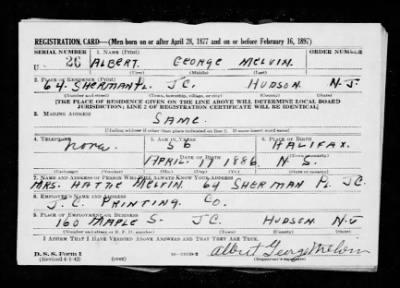 REGISTRATION CARD—(Men born on or after April 28, 1877 and on or before February 16, 1897)
SERIAL NUMBER 1. NAME (Print) ORDER NUMBER
U 26 ALBERT. GEORGE MELVIN.
(First) (Middle) (Last)
2. PLACE OF RESIDENCE (Print)
64. SHERMAN PL. J.C. HUDSON N.J.
(Number and street) (Town, township, village, or city) (County) (State)
[THE PLACE OF RESIDENCE GIVEN ON THE LINE ABOVE WILL DETERMINE LOCAL BOARD
JURISDICTION; LINE 2 OF REGISTRATION CERTIFICATE WILL BE IDENTICAL]
3. MAILING ADDRESS
SAME.
[Mailing address if other than place indicated on line 2. If same insert word same]
4. TELEPHONE 5. AGE IN YEARS 6. PLACE OF BIRTH
none. 56 HALIFAX.
DATE OF BIRTH
APRIL. 17 1886. N. S.
7. NAME AND ADDRESS OF PERSON WHO WILL ALWAYS KNOW YOUR ADDRESS
MRS. HATTIE MELVIN. 64 SHERMAN PL. J.C.
8. EMPLOYER'S NAME AND ADDRESS
J. C. PRINTING. CO.
9. PLACE OF EMPLOYMENT OR BUSINESS
160 MAPLE S. J.C. HUDSON N.J
(Number and street or R. F. D. number) (Town) (County) (State)
I AFFIRM THAT I HAVE VERIFIED ABOVE ANSWERS AND THAT THEY ARE TRUE.
D. S. S. Form 1
(Revised 4-1-42)
Albert George Melvin
(Registrant's signature)